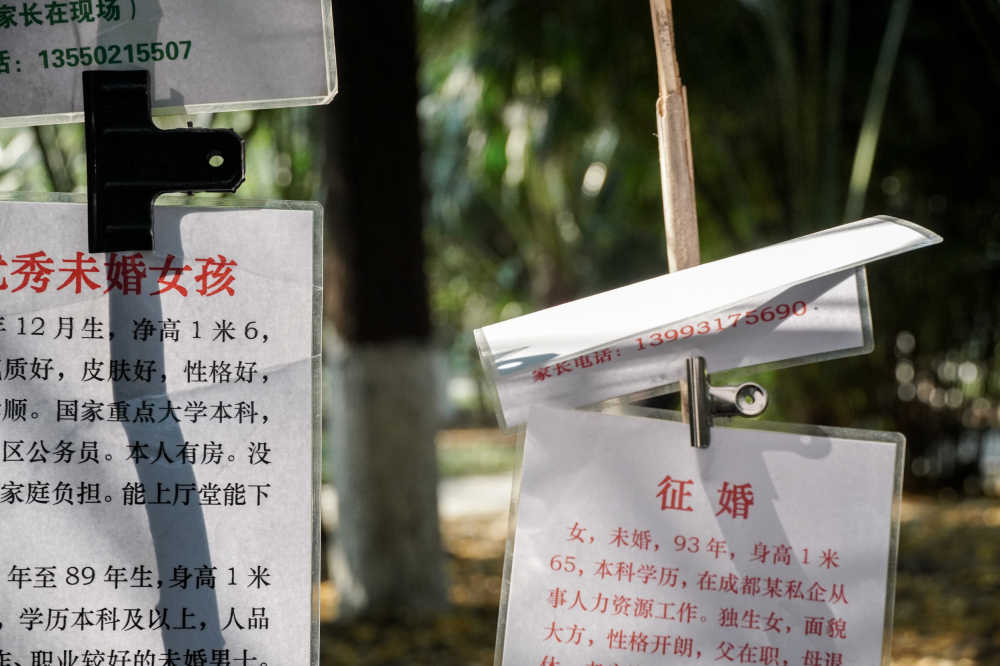 家长在现场）
话：13550215507
优秀未婚女孩
年 12 月生，净高 1 米 6，
质好，皮肤好，性格好，
顺。国家重点大学本科，
区公务员。本人有房。没
家庭负担。能上厅堂能下
年至 89 年生，身高 1 米
，学历本科及以上，人品
、职业较好的未婚男士。
家长电话：13993175690
征 婚
女，未婚，93 年，身高 1 米
65，本科学历，在成都某私企从
事人力资源工作。独生女，面貌
大方，性格开朗，父在职，母退